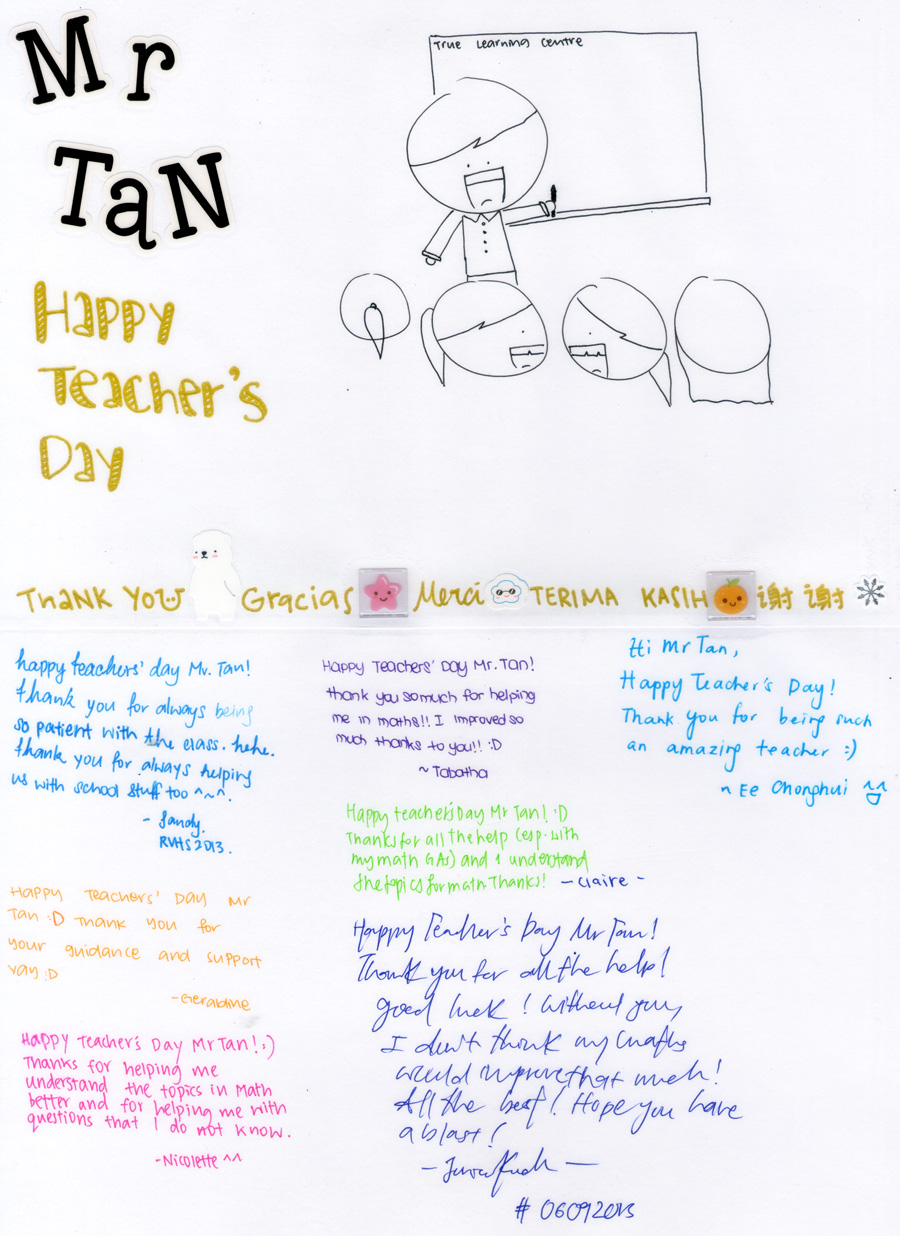 Mr
TaN
Happy
Teacher's
Day
True Learning Centre
THANK YOU Gracias Merci TERIMA KASIH 谢谢
happy teachers' day Mr. Tan!
thank you for always being
so patient with the class. hehe.
thank you for always helping
us with school stuff too ^~^.
- Sandy.
RVHS 2013.
Happy Teachers' Day Mr
Tan :D Thank you for
your guidance and support
yay :D
-Geraldine
Happy Teacher's Day Mr Tan! :)
Thanks for helping me
understand the topics in Math
better and for helping me with
questions that I do not know.
-Nicolette ^^
Happy Teachers' Day Mr. Tan!
thank you so much for helping
me in maths!! I improved so
much thanks to you!! :D
~ Tabatha
Happy teacher's Day Mr Tan! :D
Thanks for all the help (esp. with
my math GAs) and I understand
the topics for math. Thanks! - Claire -
Happy Teacher's Day Mr Tan!
Thank you for all the help!
good luck! Without you,
I don't think my maths
would improve that much!
All the best! Hope you have
a blast!
# 06092013
Hi Mr Tan,
Happy Teacher's Day!
Thank you for being such
an amazing teacher :)
~ Ee Chonghui